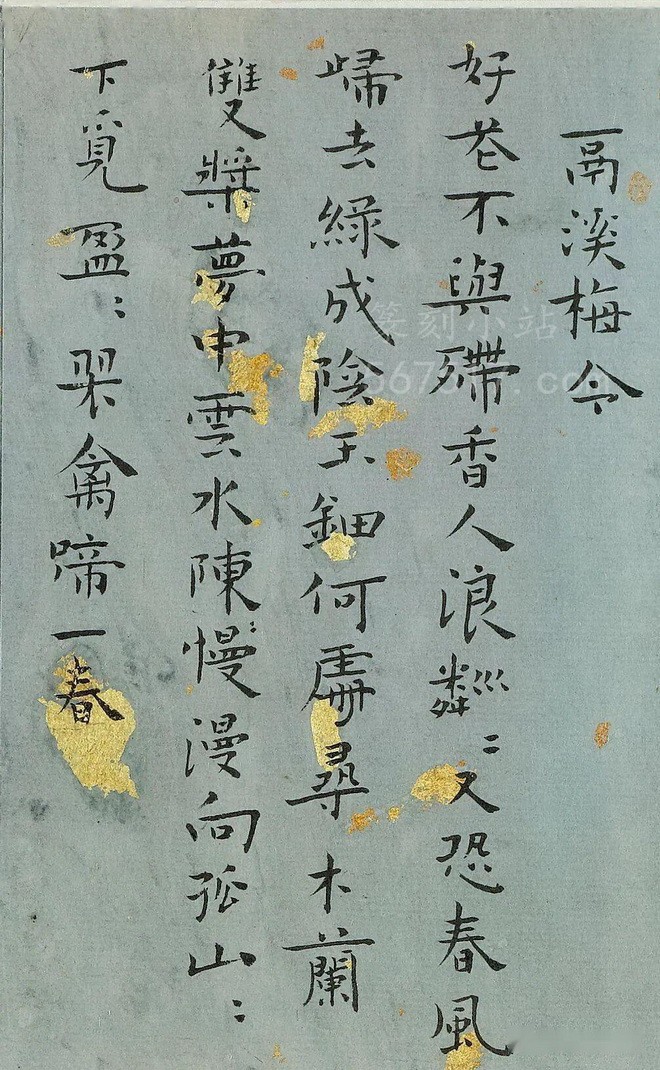 鬲溪梅令
好花不與殢香人浪粼〻又恐春風
歸去綠成陰玉鈿何處尋木蘭
雙槳夢中雲水陳慢漫向孤山〻
下覓盈〻翠禽啼一春
篆刻小站